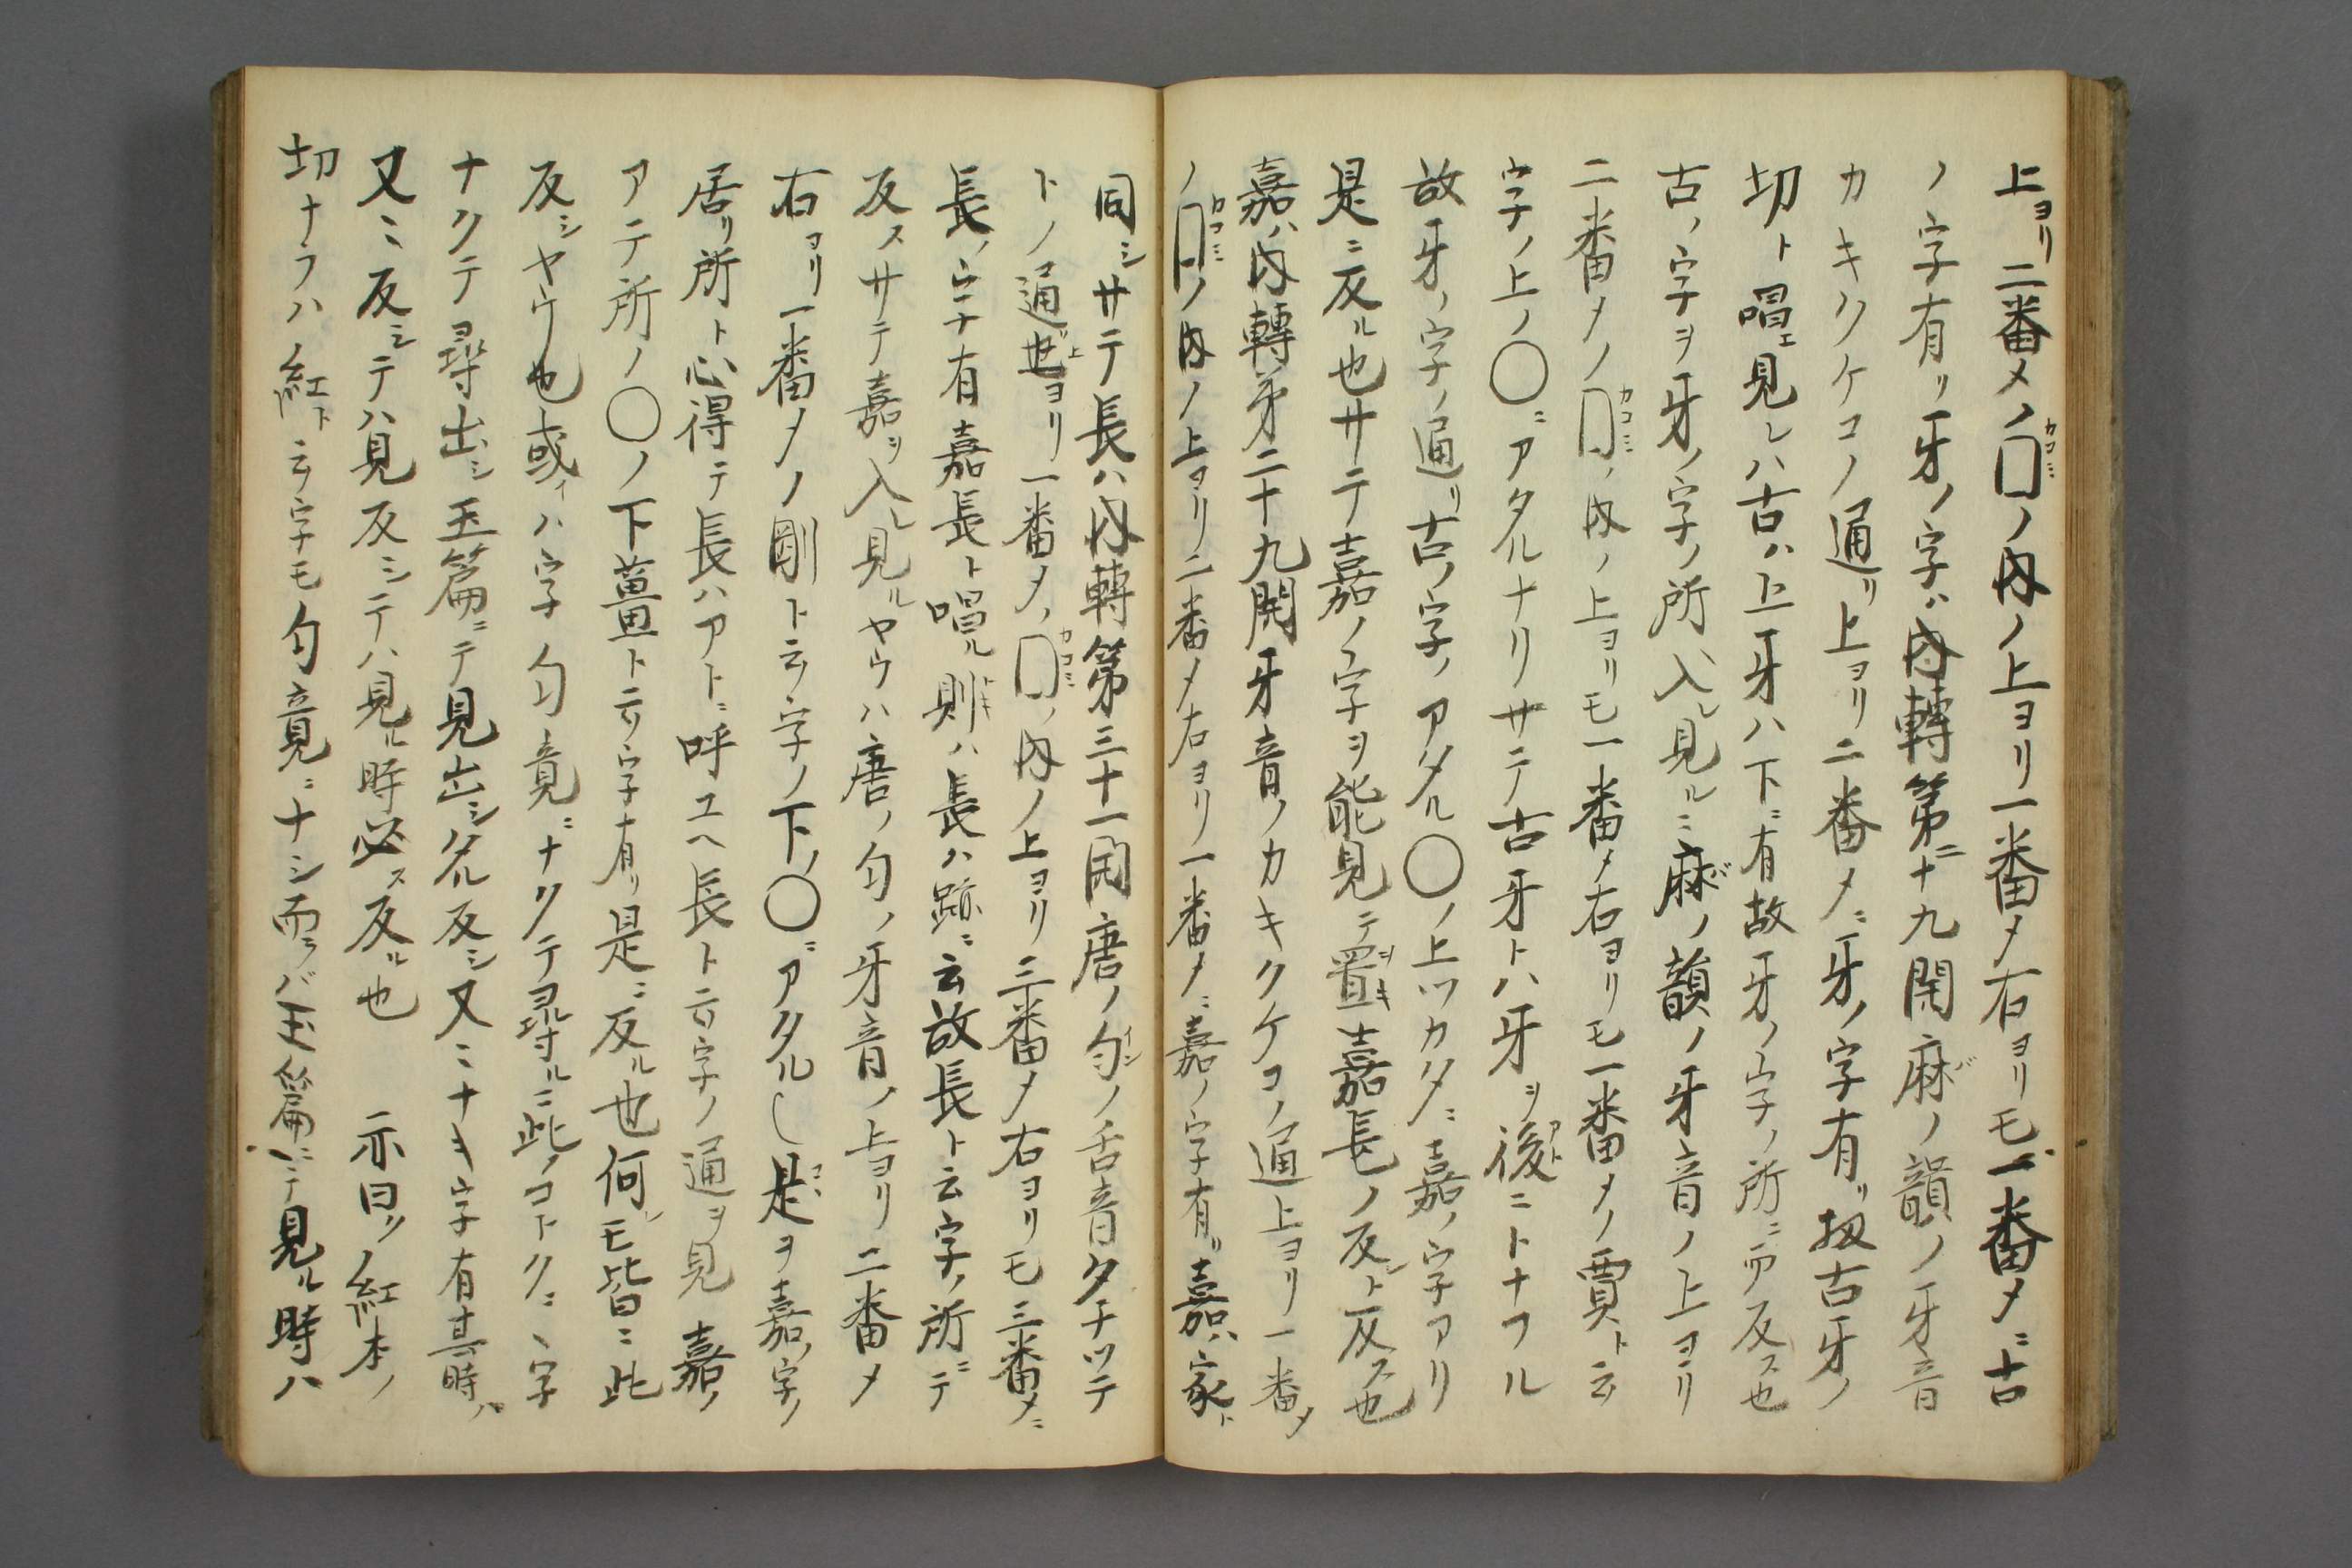 上ヨリ二番メノ囗ノ内ノ上ヨリ一番メ右ヨリモ一番メニ古
ノ字有リ牙ノ字ハ内轉第二十九開麻ノ韻ノ牙音
カキクケコノ通リ上ヨリ二番メニ牙ノ字有リ扨古牙ノ
切ト唱エ見レハ古ハ上牙ハ下ニ有故牙ノ字ノ所ニ而反ス也
古ノ字ヲ牙ノ字ノ所入レ見ルニ麻ノ韻ノ牙音ノ上ヨリ
二番メノ囗ノ内ノ上ヨリモ一番メ右ヨリモ一番メノ賈ト云
字ノ上ノ〇ニアタルナリサテ古牙トハ牙ヲ後ニトナフル
故牙ノ字ノ通リ古ノ字ノアタル〇ノ上ツカタニ嘉ノ字アリ
是ニ反ル也サテ嘉ノ字ヲ能見テ置嘉長ノ反ト反ス也
嘉ハ内轉第二十九開牙音ノカキクケコノ通上ヨリ一番メ
ノ囗ノ内ノ上ヨリ二番メ右ヨリ一番メニ嘉ノ字有リ嘉ハ家ト
同シサテ長ハ内轉第三十一開唐ノ匀ノ舌音タチツテ
トノ通也上ヨリ一番メノ囗ノ内ノ上ヨリ三番メ右ヨリモ三番メニ
長ノ字有嘉長ト唱ル則ハ長ハ跡ニ云故長ト云字ノ所ニテ
反スサテ嘉ヲ入レ見ルヤウハ唐ノ匀ノ牙音ノ上ヨリ二番メ
右ヨリ一番メノ剛ト云字ノ下ノ〇ニアタル是ヲ嘉ノ字ノ
居リ所ト心得テ長ハアトニ呼エヘ長ト云字ノ通ヲ見嘉ノ
アテ所ノ〇ノ下薑ト云字有リ是ニ反ル也何レモ皆ニ此
反シヤウ也或イハ字匀竟ニナクテ尋ルニ此ノコトクニ字
ナクテ尋出シ玉篇ニテ見出シタル反シ又ニナキ字有其時ハ
又ニ反シテハ見反シテハ見ル時必ス反ル也　亦曰ク紅木ノ
切ナラハ紅ト云字モ匀竟ニナシ而ラバ玉篇ニテ見ル時ハ